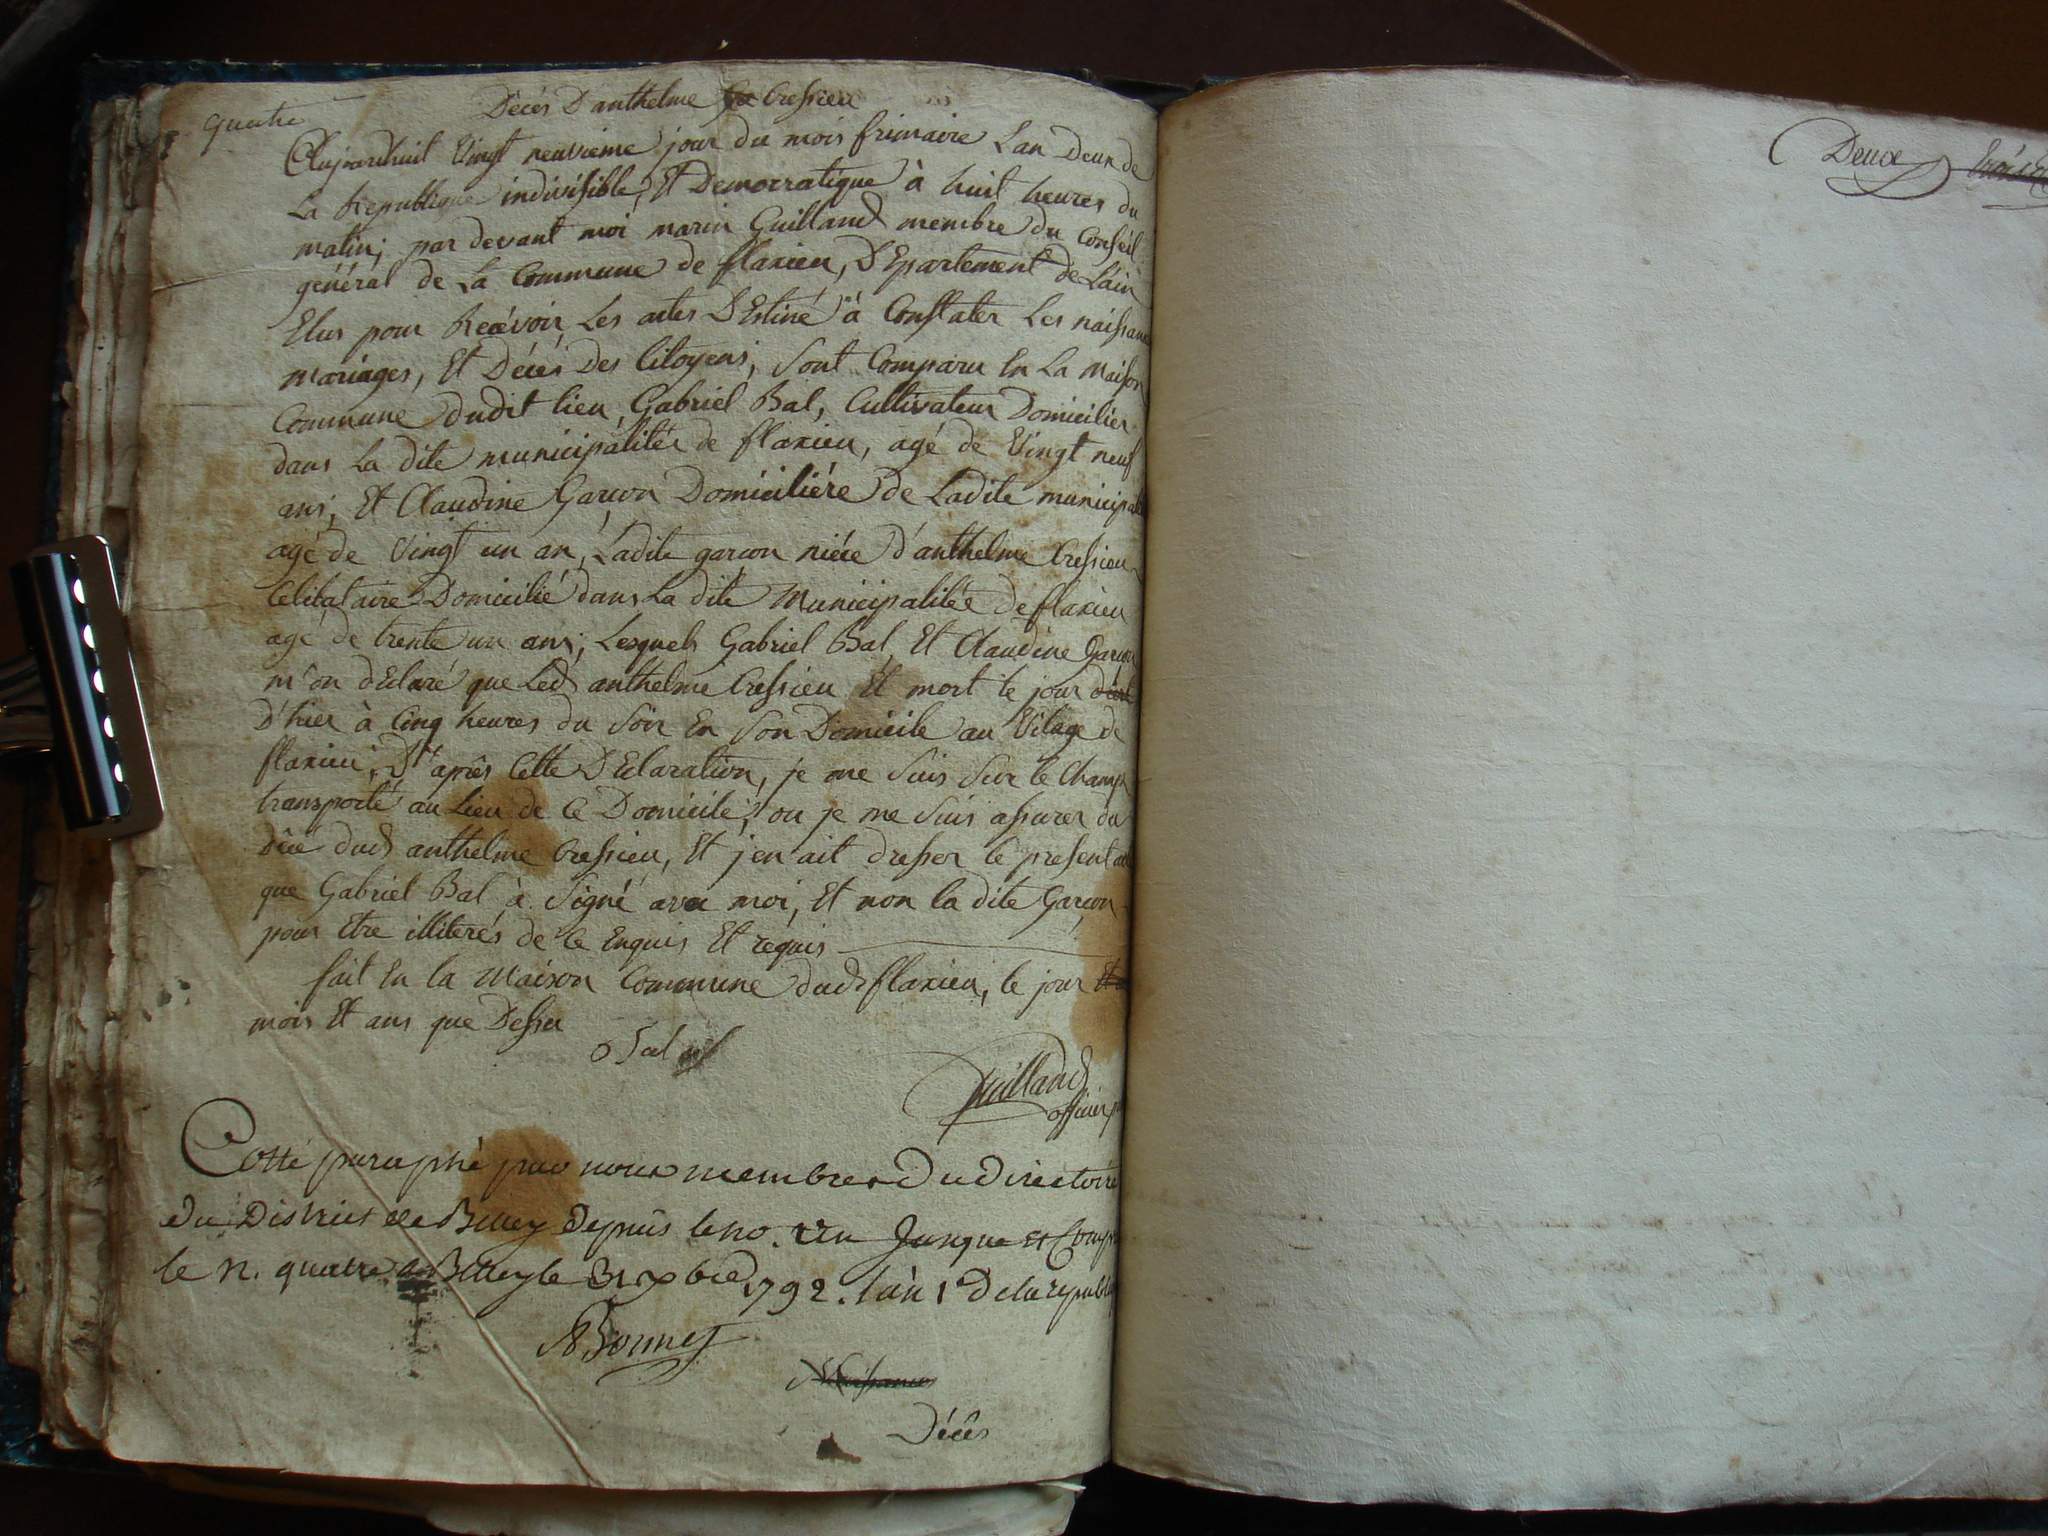 quatre
Décés D'anthelme Cressieu
Aujourdhuit Vingt neuvieme jour du mois frimaire Lan Deux de
La Republique indivisible, Et Democratique à huit heures du
matin; par devant moi marin Guilland membre du Conseil
général de La Commune de flaxieu, DEpartement de L'ain
Elus pour Recévoir Les actes DEstiné à Constater Les naissances
mariages, Et Décés Des Citoyens, Sont Comparu En La Maison
Commune dudit lieu, Gabriel Bal, Cultivateur Domicilier
dans La dite municipalités de flaxieu, agé de Vingt neuf
ans, Et Claudine Garcon Domiciliére de Ladite municipalité
agé de Vingt un an, Ladite garcon niéce d'anthelme Cressieu
Celibataire Domicilié dans La dite Municipalitée de flaxieu
agé de trente un ans; Lesquels Gabriel Bal, Et Claudine Garcon
m'on dEclaré que Led anthelme Cressieu Et mort le jour
D'hier à Cinq heures du Soir En Son Domicile au Vilage de
flaxieu; D'aprês Cette DEclaration, je me Suis Sur le Champ
transporté au Lieu de Ce Domicile, ou je me Suis assurer du
Décé dud anthelme Cressieu, Et j'en ait dresser le present
que Gabriel Bal à Signé avec moi, Et non la dite Garcon
pour Etre illiterés de Ce Enquis Et requis
fait En la Maison Commune dud flaxieu, le jour
mois Et ans que Dessu
Bal
Guilland
officier
Cotté paraphé par nous membres Du Directoire
du District de Belley Depuis le no. un Jusque et Compris
le n. quatre a Belley le 31 xbre 1792. l'an 1er De la republique
Bonnet
Naissances
Décês
Deux